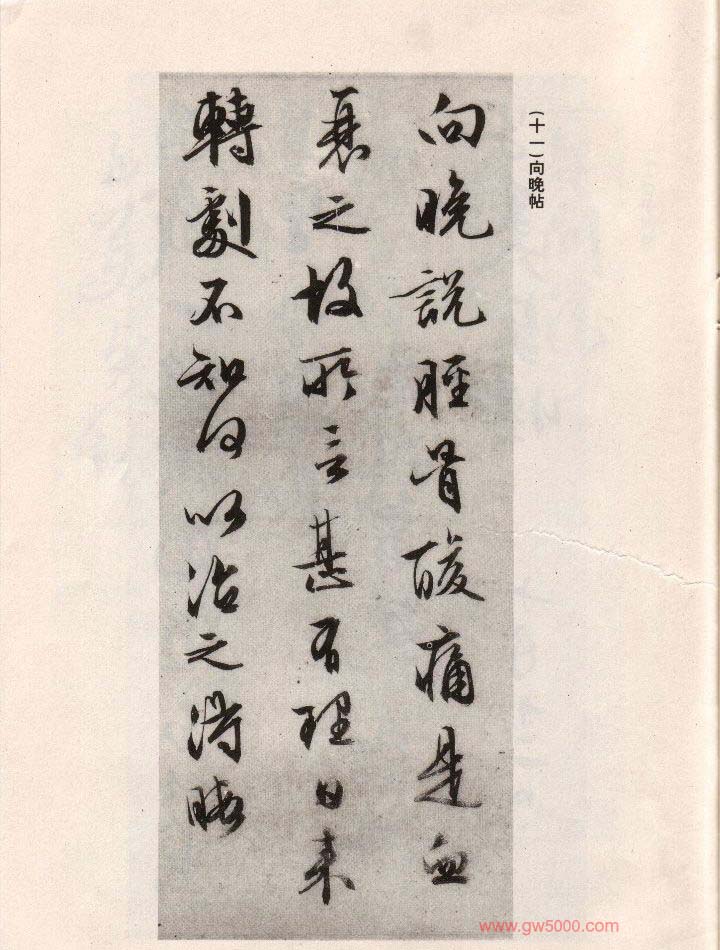 (十一)向晚帖
向晚說脛骨酸痛是血
衰之故所言甚有理日来
轉劇不知何以治之得晦
www.gw5000.com